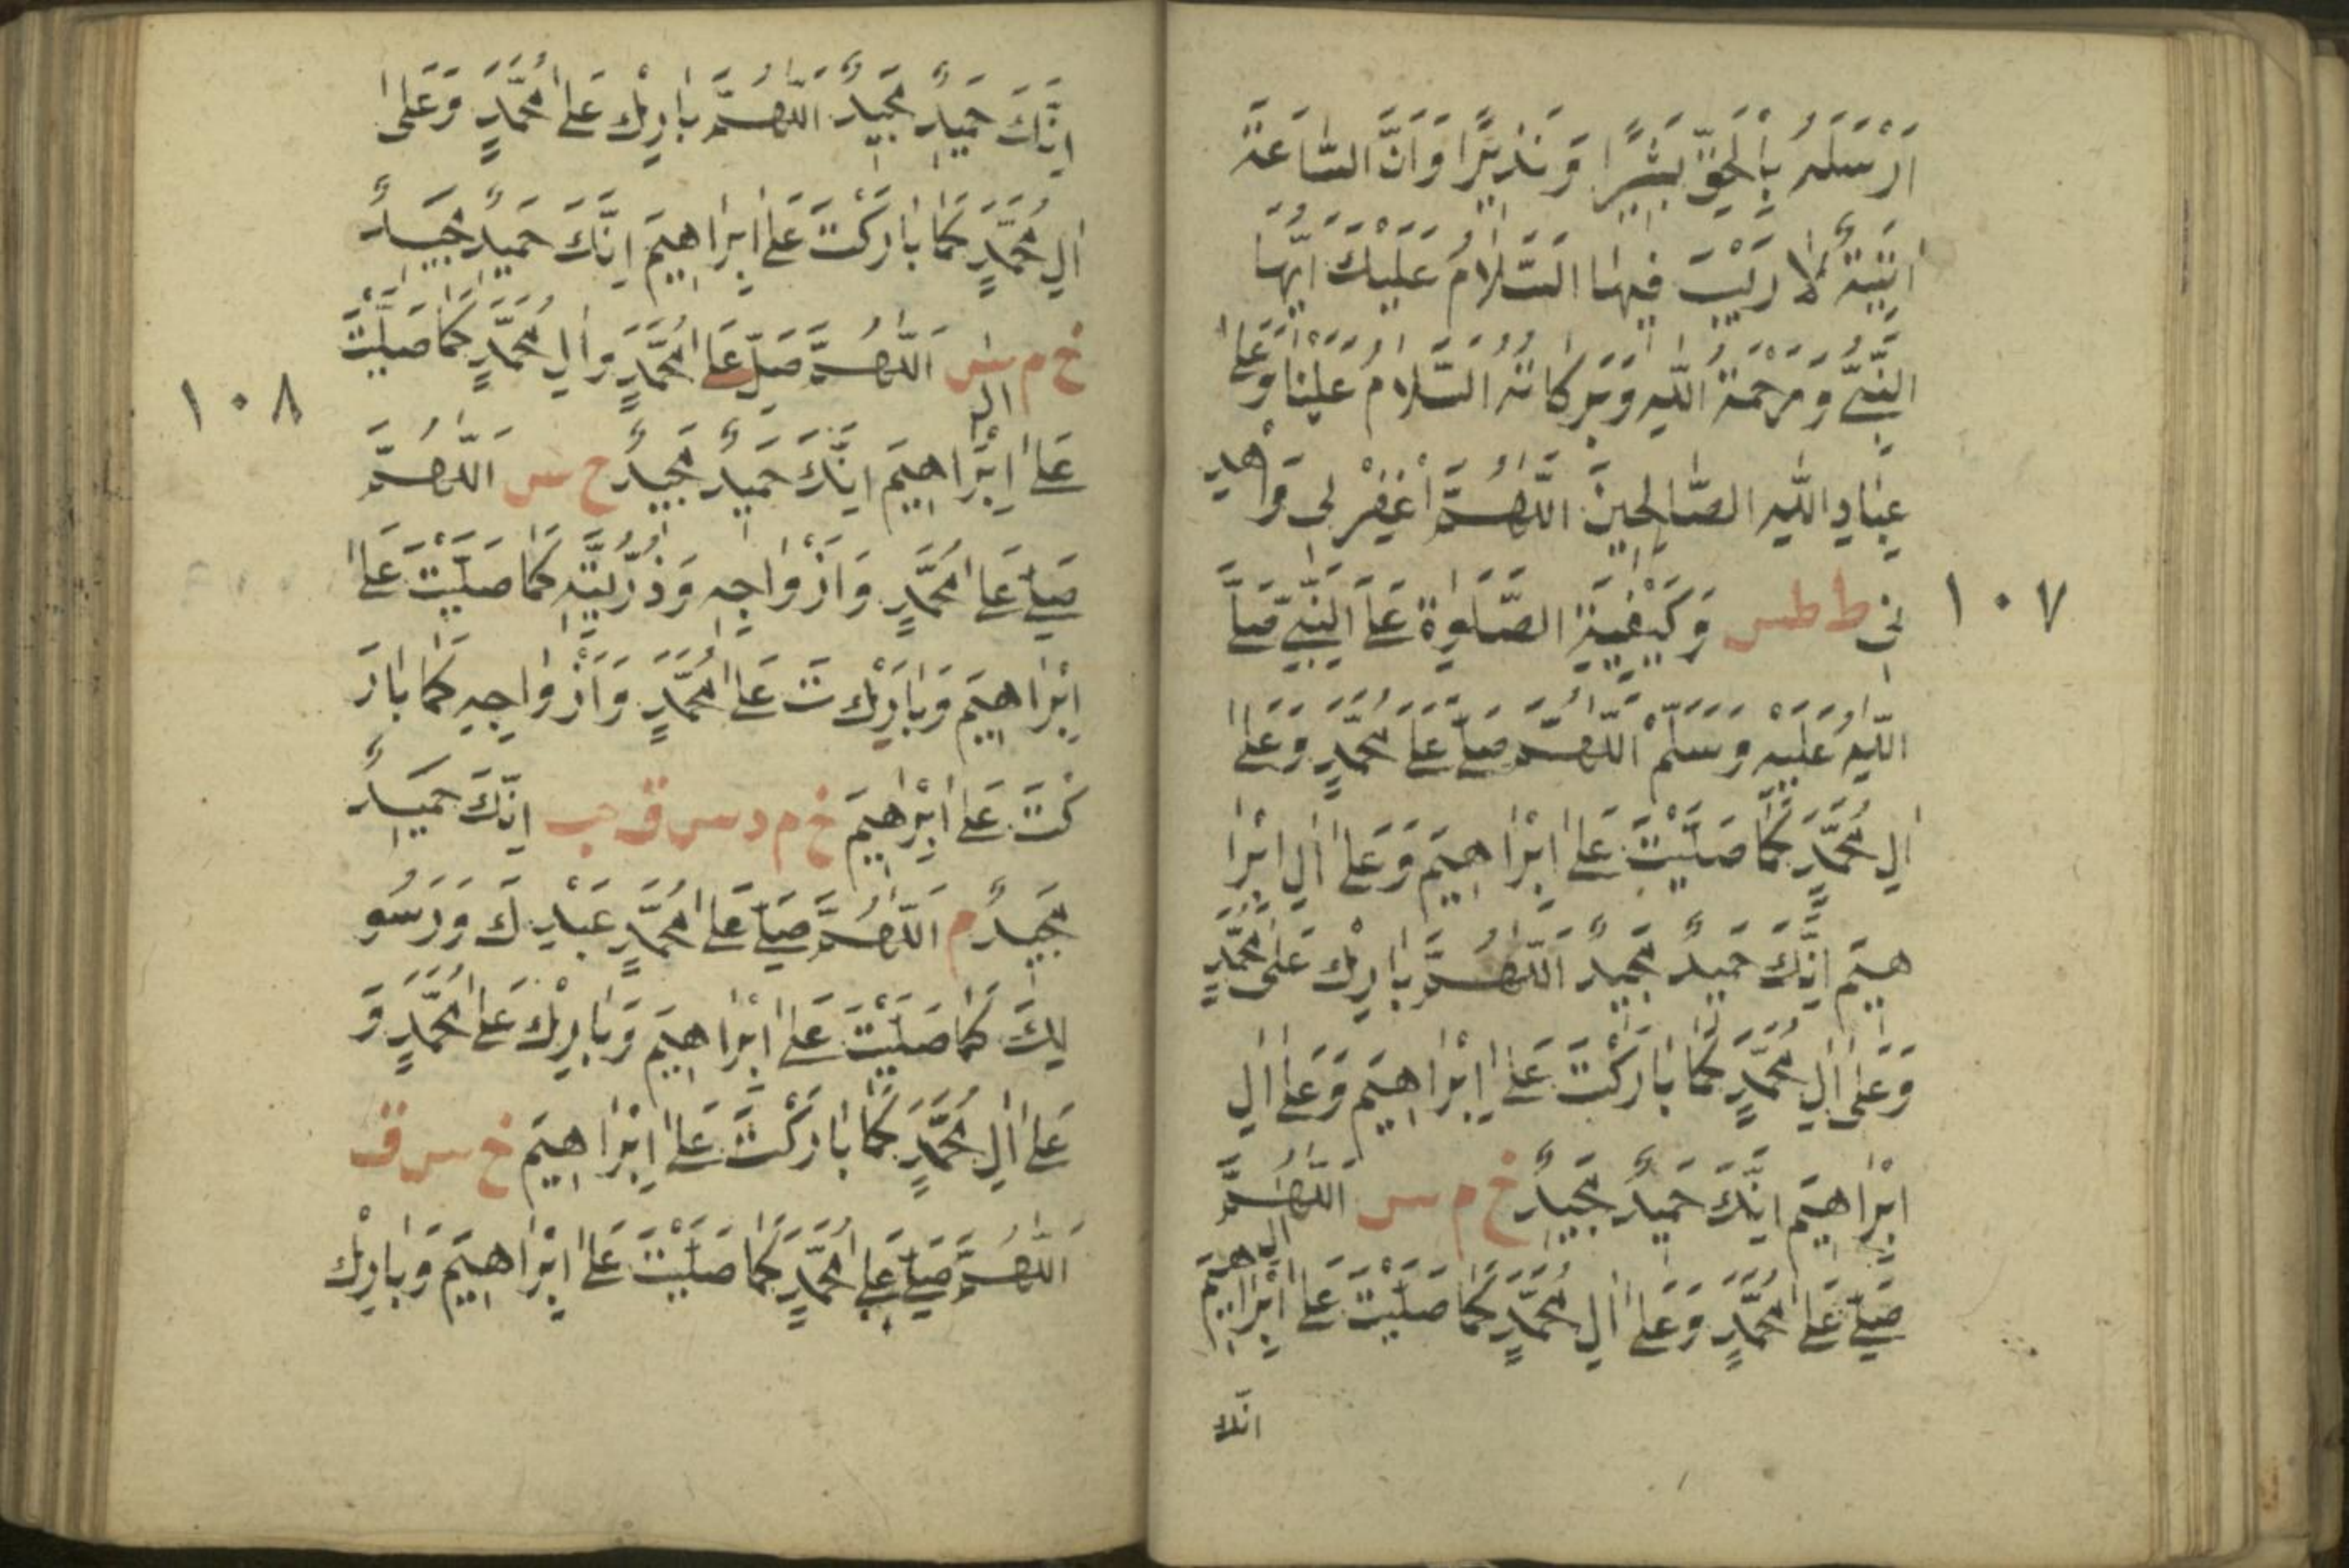 اَرْسَلَهُ بِالْحَقِّ بَشِيرًا وَنَذِيرًا وَاَنَّ السَّاعَةَ
اٰتِيَةٌ لَا رَيْبَ فِيهَا السَّلَامُ عَلَيْكَ اَيُّهَا
النَّبِيُّ وَرَحْمَةُ اللّٰهِ وَبَرَكَاتُهُ السَّلَامُ عَلَيْنَا وَعَلٰى
عِبَادِ اللّٰهِ الصَّالِحِينَ اَللّٰهُمَّ اغْفِرْ لِى وَاهْدِ
نِى ط طس وَكَيْفِيَّةُ الصَّلٰوةِ عَلَى النَّبِىِّ صَلَّى
١٠٧
اللّٰهُ عَلَيْهِ وَسَلَّمَ اَللّٰهُمَّ صَلِّ عَلٰى مُحَمَّدٍ وَعَلٰى
اٰلِ مُحَمَّدٍ كَمَا صَلَّيْتَ عَلٰى اِبْرَاهِيمَ وَعَلٰى اٰلِ اِبْرَا
هِيمَ اِنَّكَ حَمِيدٌ مَجِيدٌ اَللّٰهُمَّ بَارِكْ عَلٰى مُحَمَّدٍ
وَعَلٰى اٰلِ مُحَمَّدٍ كَمَا بَارَكْتَ عَلٰى اِبْرَاهِيمَ وَعَلٰى اٰلِ
اِبْرَاهِيمَ اِنَّكَ حَمِيدٌ مَجِيدٌ خ م س اَللّٰهُمَّ
صَلِّ عَلٰى مُحَمَّدٍ وَعَلٰى اٰلِ مُحَمَّدٍ كَمَا صَلَّيْتَ عَلٰى اٰلِ اِبْرَاهِيمَ
انك
اِنَّكَ حَمِيدٌ مَجِيدٌ اَللّٰهُمَّ بَارِكْ عَلٰى مُحَمَّدٍ وَعَلٰى
اٰلِ مُحَمَّدٍ كَمَا بَارَكْتَ عَلٰى اِبْرَاهِيمَ اِنَّكَ حَمِيدٌ مَجِيدٌ
خ م س اَللّٰهُمَّ صَلِّ عَلٰى مُحَمَّدٍ وَاٰلِ مُحَمَّدٍ كَمَا صَلَّيْتَ
١٠٨
عَلٰى اٰلِ اِبْرَاهِيمَ اِنَّكَ حَمِيدٌ مَجِيدٌ خ س اَللّٰهُمَّ
صَلِّ عَلٰى مُحَمَّدٍ وَاَزْوَاجِهِ وَذُرِّيَّتِهِ كَمَا صَلَّيْتَ عَلٰى
اِبْرَاهِيمَ وَبَارِكْ عَلٰى مُحَمَّدٍ وَاَزْوَاجِهِ كَمَا بَارَ
كْتَ عَلٰى اِبْرٰهِيمَ خ م د س ق حب اِنَّكَ حَمِيدٌ
مَجِيدٌ م اَللّٰهُمَّ صَلِّ عَلٰى مُحَمَّدٍ عَبْدِكَ وَرَسُو
لِكَ كَمَا صَلَّيْتَ عَلٰى اِبْرَاهِيمَ وَبَارِكْ عَلٰى مُحَمَّدٍ وَ
عَلٰى اٰلِ مُحَمَّدٍ كَمَا بَارَكْتَ عَلٰى اِبْرَاهِيمَ خ س ق
اَللّٰهُمَّ صَلِّ عَلٰى مُحَمَّدٍ كَمَا صَلَّيْتَ عَلٰى اِبْرَاهِيمَ وَبَارِكْ